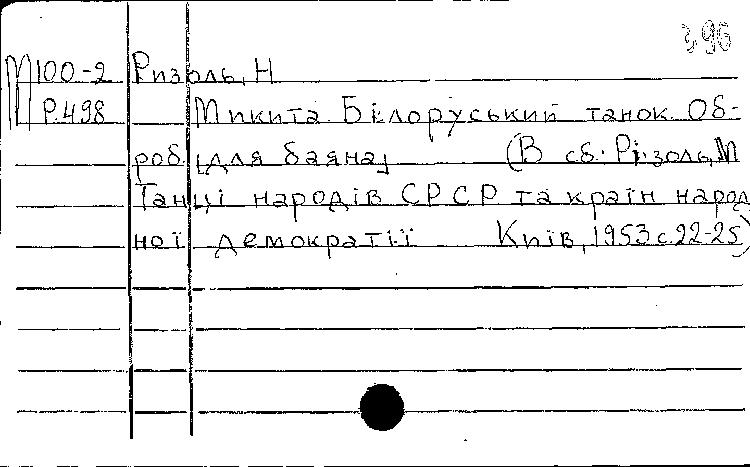 3,96
М100-2 Ризоль, Н
Р.498 Микита. Білоруський танок. Об-
роб. [для баяна] (В сб.: Різоль, М
Танці народів СРСР та країн народ
ної демократії Київ, 1953 с.22-25)